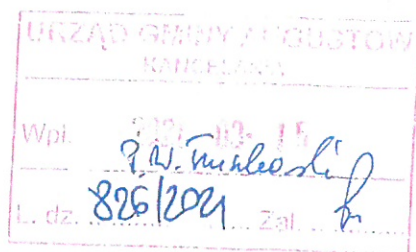 URZĄD GMINY AUGUSTÓW
KANCELARIA
Wpł. 2021 -03- 15
L. dz. 826/2021 Zał.